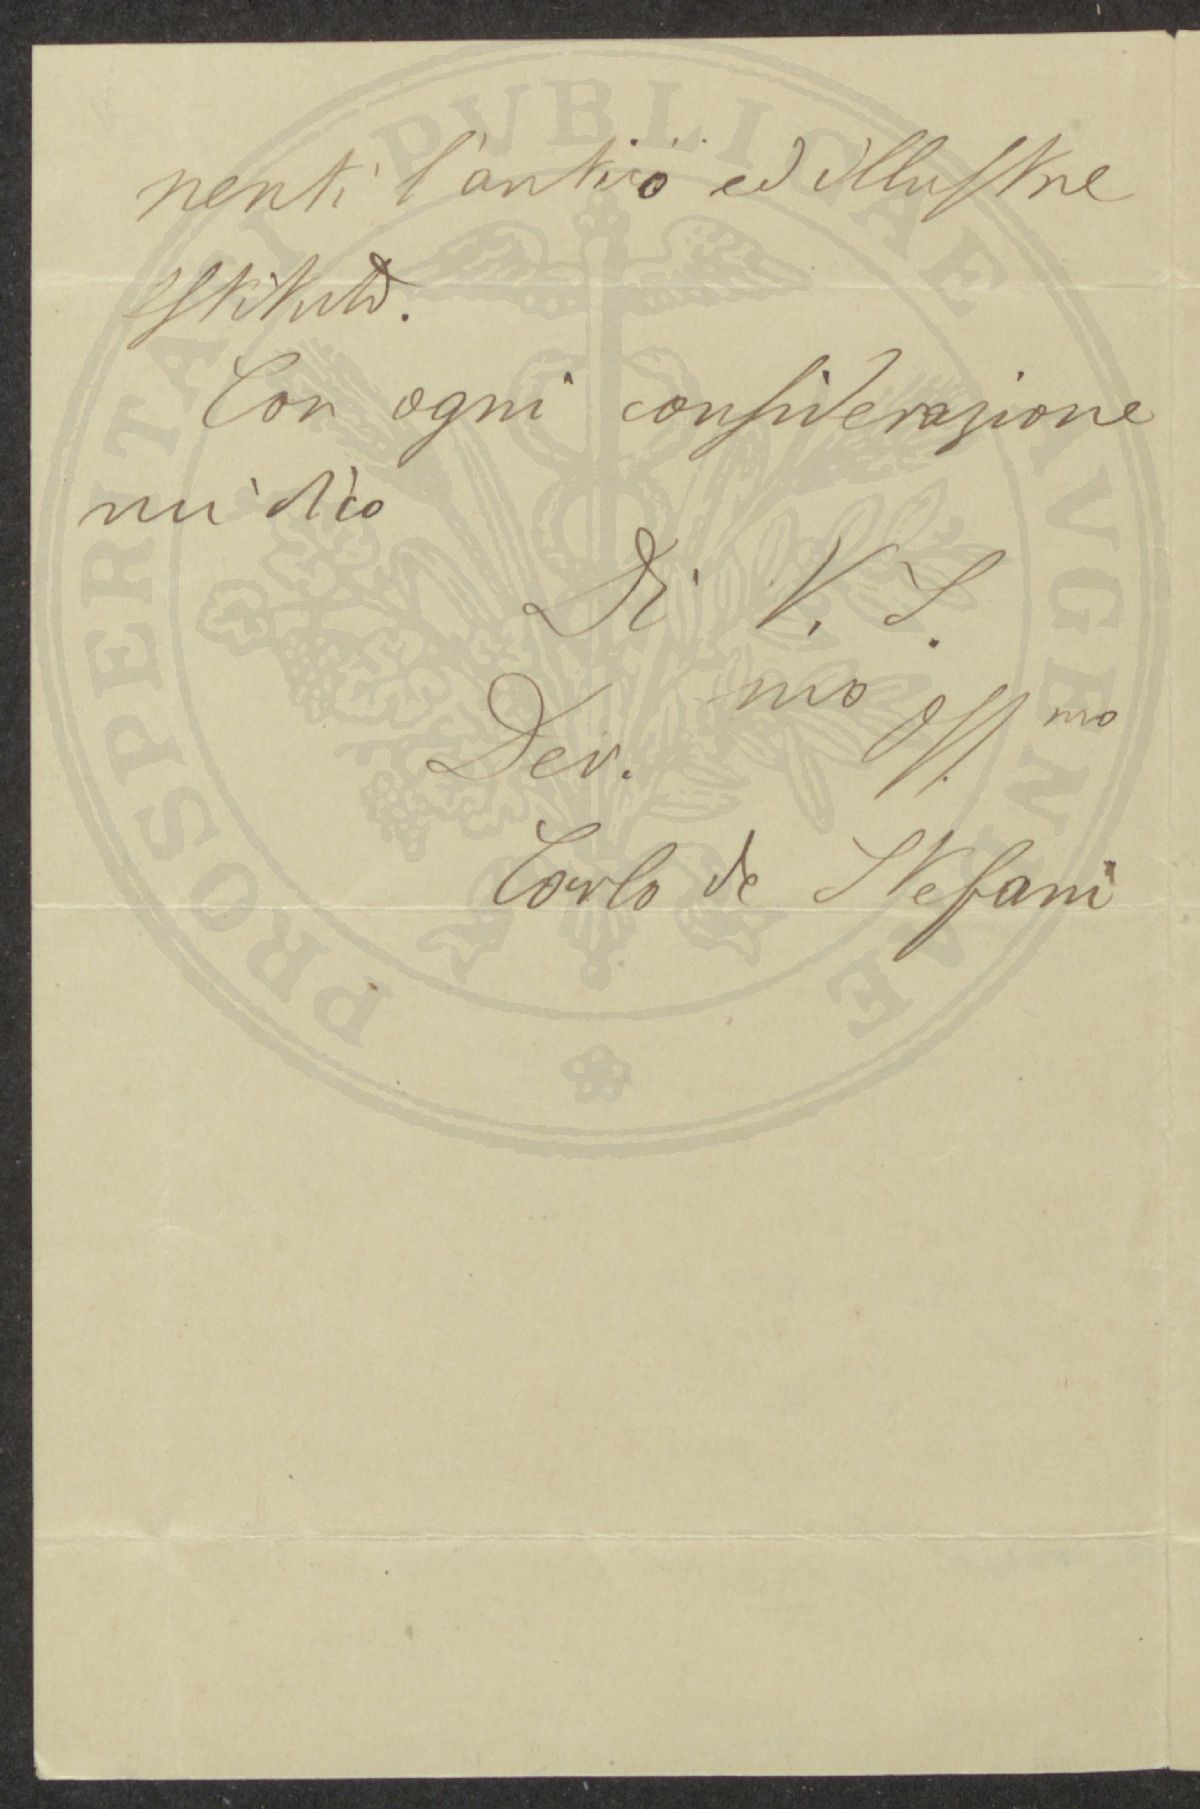 nenti l'antico ed illustre
istituto.
Con ogni considerazione
mi dico
Di V. S.
Dev.mo Oss.mo
Carlo de Stefani
PROSPERITATI PVBLICAE AVGENDAE